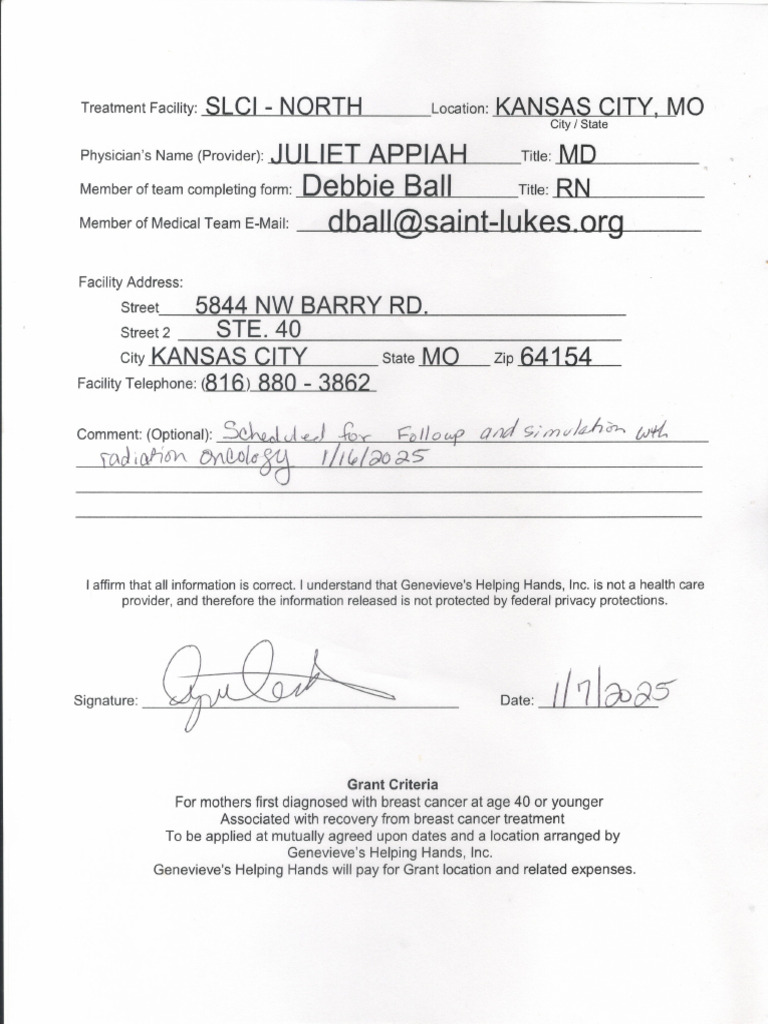 Treatment Facility: SLCI - NORTH Location: KANSAS CITY, MO
City / State
Physician's Name (Provider): JULIET APPIAH Title: MD
Member of team completing form: Debbie Ball Title: RN
Member of Medical Team E-Mail: dball@saint-lukes.org
Facility Address:
Street 5844 NW BARRY RD.
Street 2 STE. 40
City KANSAS CITY State MO Zip 64154
Facility Telephone: (816) 880 - 3862
Comment: (Optional): Scheduled for Follow up and simulation with
radiation oncology 1/16/2025
I affirm that all information is correct. I understand that Genevieve's Helping Hands, Inc. is not a health care
provider, and therefore the information released is not protected by federal privacy protections.
Signature: Date: 1/7/2025
Grant Criteria
For mothers first diagnosed with breast cancer at age 40 or younger
Associated with recovery from breast cancer treatment
To be applied at mutually agreed upon dates and a location arranged by
Genevieve's Helping Hands, Inc.
Genevieve's Helping Hands will pay for Grant location and related expenses.